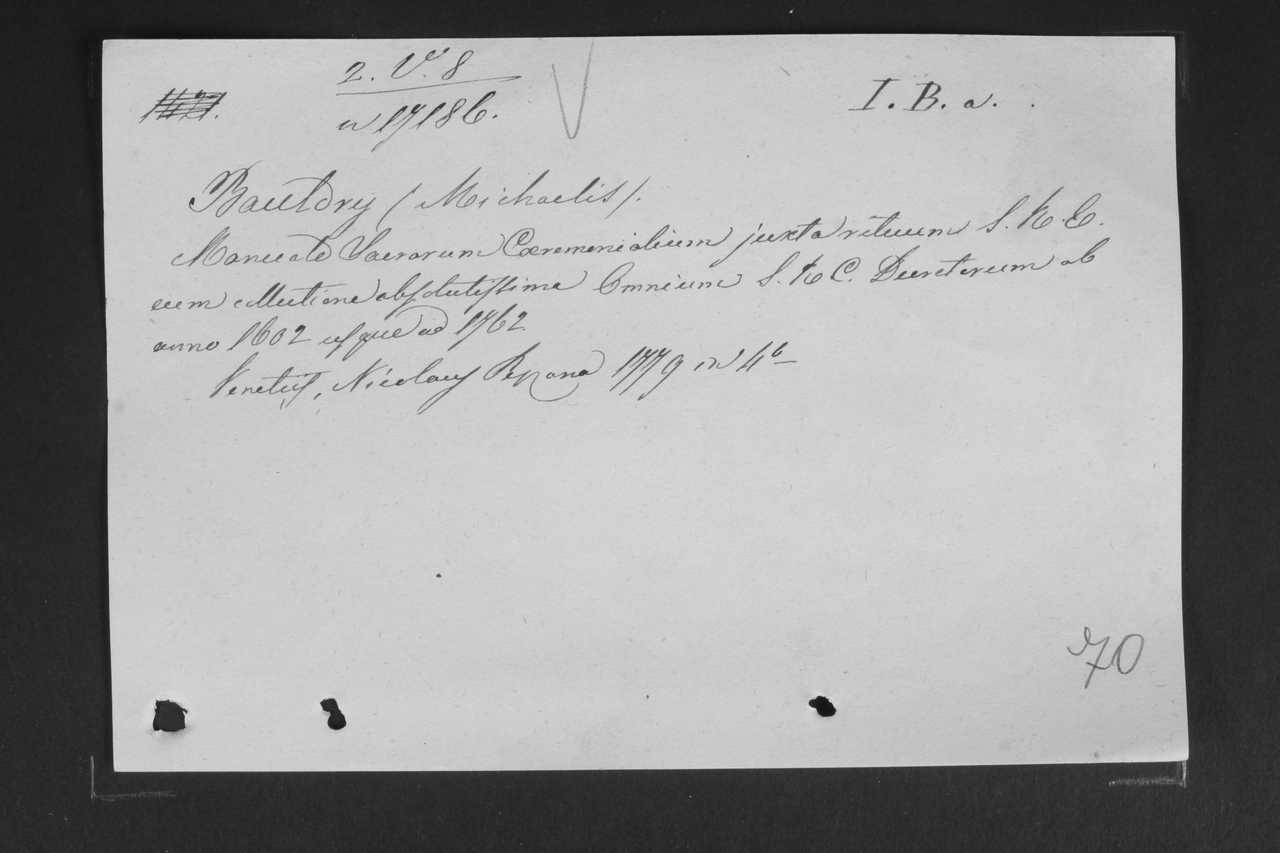 2. Vº. 8
n 17186.
I. B. a.
Bauldry (Michaelis).
Manuale Sacrarum Cæremonialium juxta rituum S. R. E.
cum collectione absolutissima Omnium S. R. C. Decretorum ab
anno 1602 usque ad 1762
Venetiis, Nicolaus Pezzana 1779 in 4º
70